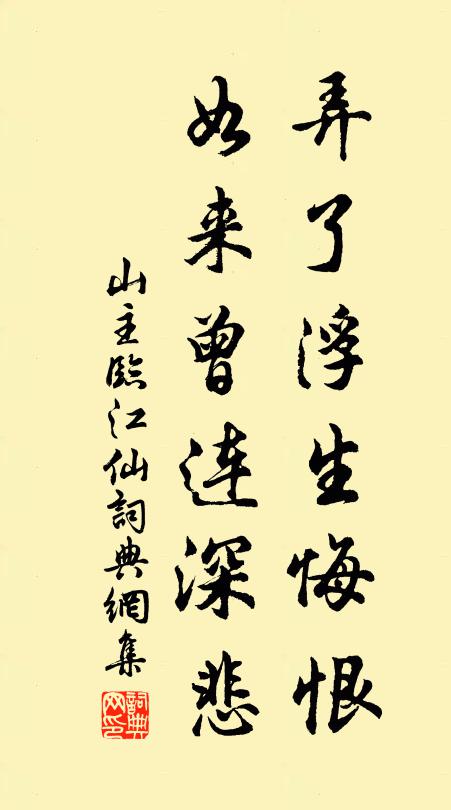 弄了浮生悔恨
如来曾连深悲
山主臨江仙詞典網集
詞典
网印